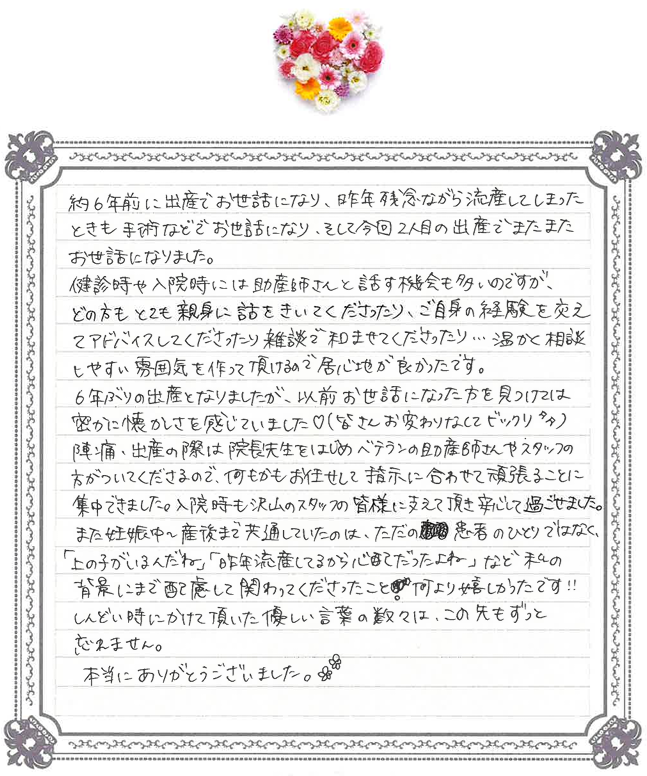 約6年前に出産でお世話になり、昨年残念ながら流産してしまった
ときも手術などでお世話になり、そして今回2人目の出産でまたまた
お世話になりました。
健診時や入院時には助産師さんと話す機会も多いのですが、
どの方もとても親身に話をきいてくださったり、ご自身の経験を交え
てアドバイスしてくださったり雑談で和ませてくださったり…温かく相談
しやすい雰囲気を作って頂けるので居心地が良かったです。
6年ぶりの出産となりましたが、以前お世話になった方を見つけては
密かに懐かしさを感じていました♡(皆さんお変わりなくてビックリ)
陣痛、出産の際は院長先生をはじめベテランの助産師さんやスタッフの
方がついてくださるので、何もかもお任せして指示に合わせて頑張ることに
集中できました。入院時も沢山のスタッフの皆様に支えて頂き安心して過ごせました。
また妊娠中〜産後まで共通していたのは、ただの患者のひとりではなく、
「上の子がいるんだね」「昨年流産してるから心配だったよね」など私の
背景にまで配慮して関わってくださったこと。何より嬉しかったです!!
しんどい時にかけて頂いた優しい言葉の数々は、この先もずっと
忘れません。
本当にありがとうございました。